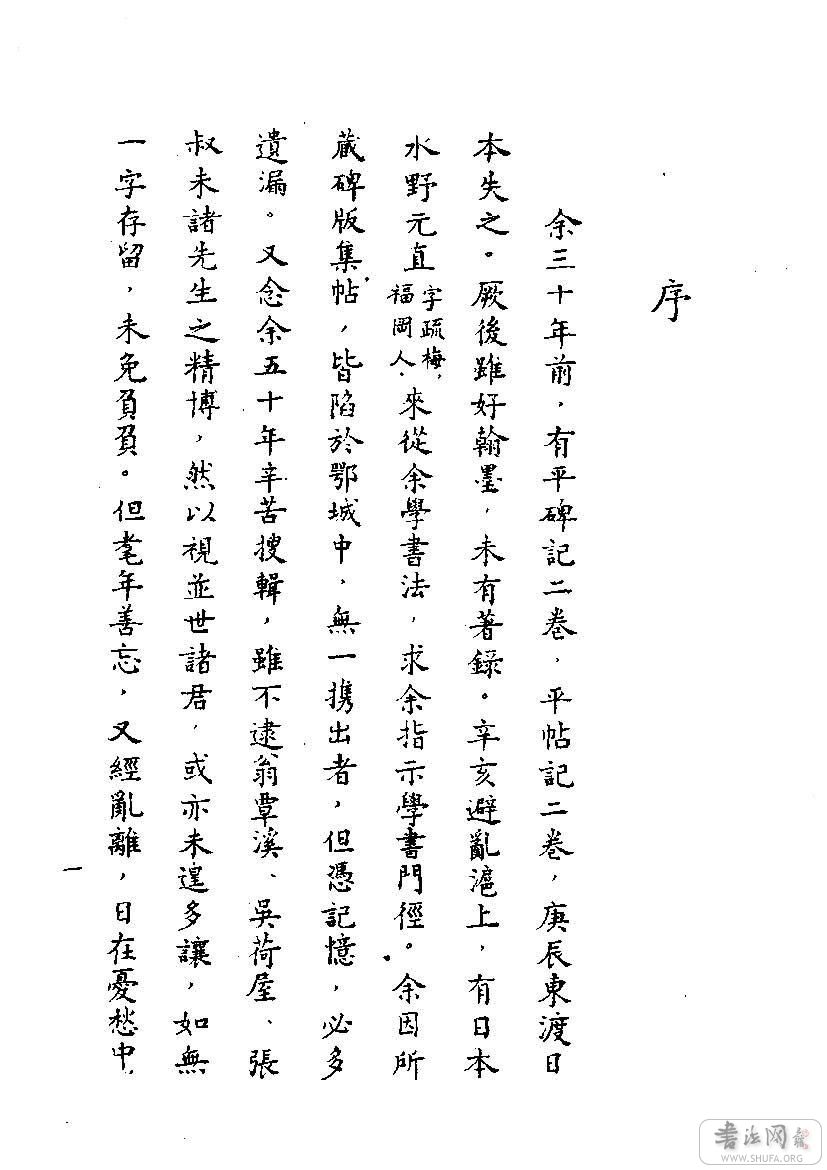 序
余三十年前，有平碑記二卷，平帖記二卷，庚辰東渡日
本失之。厥後雖好翰墨，未有著錄。辛亥避亂滬上，有日本
水野元直字疏梅，福岡人，來從余學書法，求余指示學書門徑。余因所
藏碑版集帖，皆陷於鄂城中，無一攜出者，但憑記憶，必多
遺漏。又念余五十年辛苦搜輯，雖不逮翁覃溪、吳荷屋、張
叔未諸先生之精博，然以視並世諸君，或亦未遑多讓，如無
一字存留，未免負負。但耄年善忘，又經亂離，日在憂愁中，
一
書法网
WWW.SHUFA.ORG